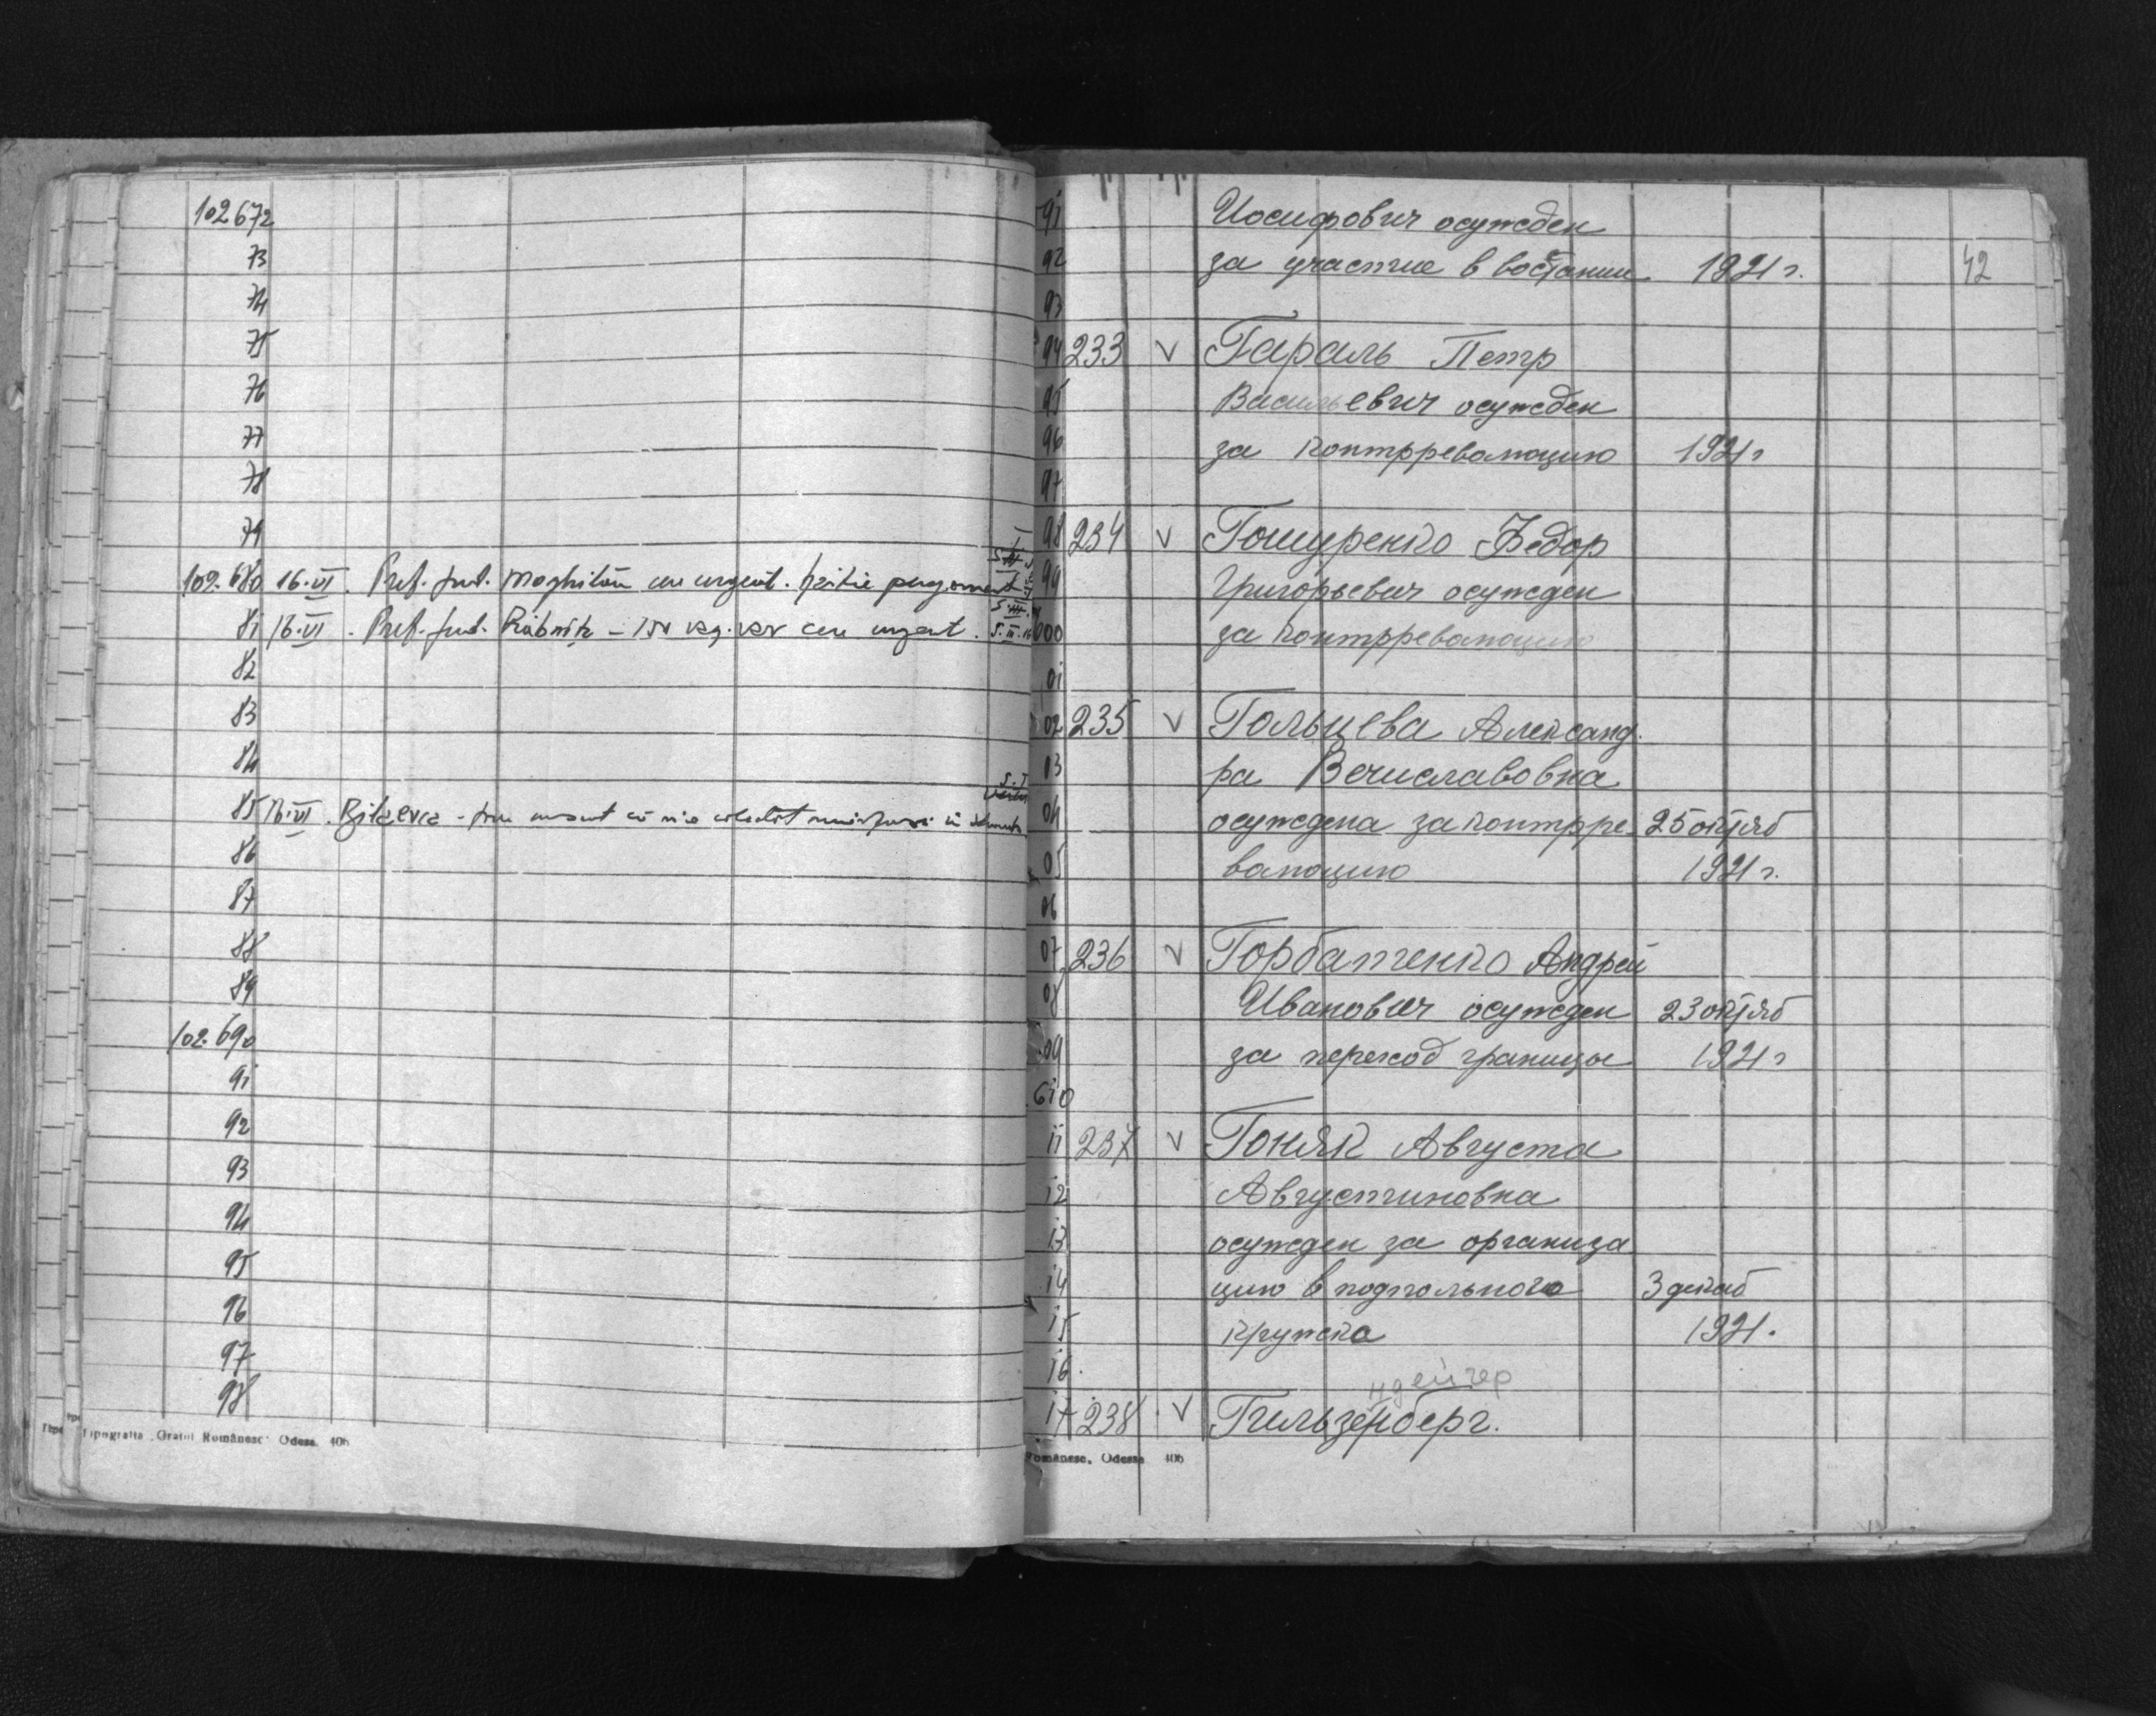 102672
73
74
75
76
77
78
79
102.680 16.VI. Pref. jud. Moghilău cere urgent. hârtie pergament
81 16.VI. Pref. jud. Râbnița - 150 kg. cere urgent. S.III.
82
83
84
85 16.VI.
86
87
88
89
102.690
91
92
93
94
95
96
97
98
Tipografia „Graiul Românesc" Odesa. 406
42
91 Иосифович осужден
92 за участие в востании 1921 г.
93
94 233 V Гараль Петр
95 Васильевич осужден
96 за контрреволюцию 1921 г
97
98 234 V Гошуренко Федор
99 Григорьевич осужден
600 за контрреволюцию
01
02 235 V Гольцева Александ.
03 ра Вечиславовна
04 осуждена за контрре 25 октяб
05 волюцию 1921 г.
06
07 236 V Горбатенко Андрей
08 Иванович осужден 23 октяб
09 за переход границы 1921 г
610
11 237 V Гоняк Августа
12 Августиновна
13 осужден за организа
14 цию в подпольного 3 декаб
15 кружка 1921.
16.
17 238. V Гильзенберг.
Românesc, Odessa 406